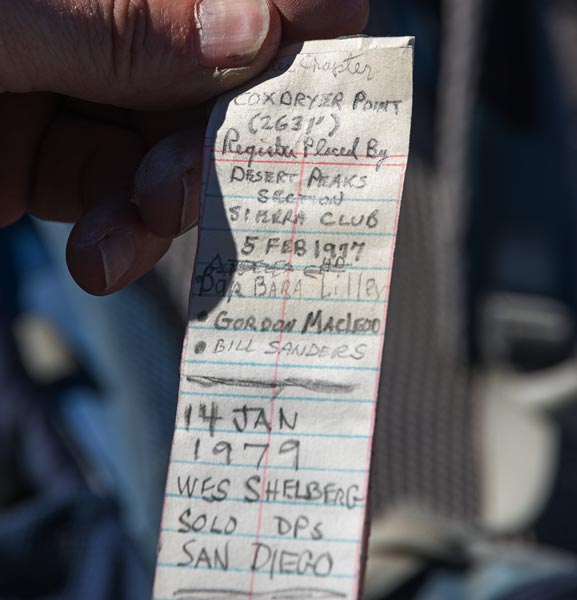 Chapter
COXDRYER POINT
(2631')
Register Placed By
DESERT PEAKS
SECTION
SIERRA CLUB
5 FEB 1977
BarBARA Lilley
• GORDON MACLEOD
• BILL SANDERS
14 JAN
1979
WES SHELBERG
SOLO DPS
SAN DIEGO